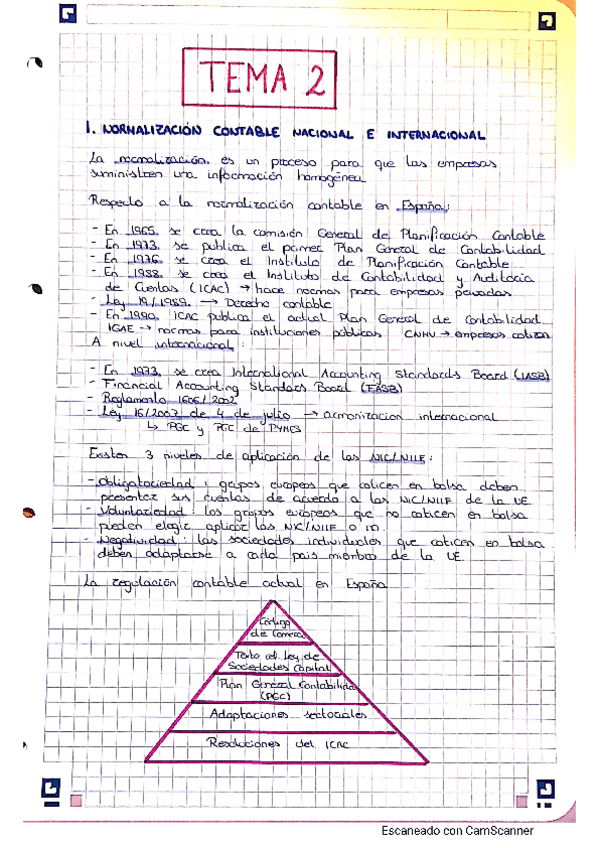 TEMA 2
1. NORMALIZACIÓN CONTABLE NACIONAL E INTERNACIONAL
La normalización es un proceso para que las empresas
suministren una información homogénea
Respecto a la normalización contable en España:
- En 1965, se crea la comisión General de Planificación Contable
- En 1973, se publica el primer Plan General de Contabilidad
- En 1976, se crea el Instituto de Planificación Contable
- En 1988, se crea el Instituto de Contabilidad y Auditoría
de Cuentas (ICAC) → hace normas para empresas privadas
- Ley 19/1989. → Derecho contable
- En 1990, ICAC publica el actual Plan General de Contabilidad
IGAE → normas para instituciones públicas CNMV → empresas cotizan
A nivel internacional:
- En 1973, se crea International Accounting Standards Board (IASB)
- Financial Accounting Standars Board (FASB)
- Reglamento 1606/2002
- Ley 16/2007 de 4 de julio → armonizacion internacional
↳ PGC y PGC de PYMES
Existen 3 niveles de aplicación de las NIC/NIIF:
- Obligatoriedad: grupos europeos que coticen en bolsa deben
presentar sus cuentas de acuerdo a las NIC/NIIF de la UE
- Voluntariedad: los grupos europeos que no coticen en bolsa
pueden elegir aplicar las NIC/NIIF o no.
- Negatividad: las sociedades individuales que coticen en bolsa
deben adaptarse a cada país miembro de la UE.
La regulación contable actual en España
Código
de Comercio
Texto ref. Ley de
Sociedades Capital
Plan General Contabilidad
(PGC)
Adaptaciones sectoriales
Resoluciones del ICAC
Escaneado con CamScanner